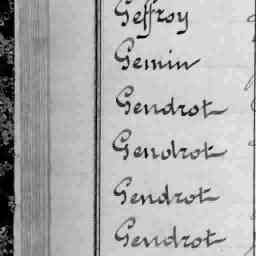 Geffroy
Gemin
Gendrot
Gendrot
Gendrot
Gendrot